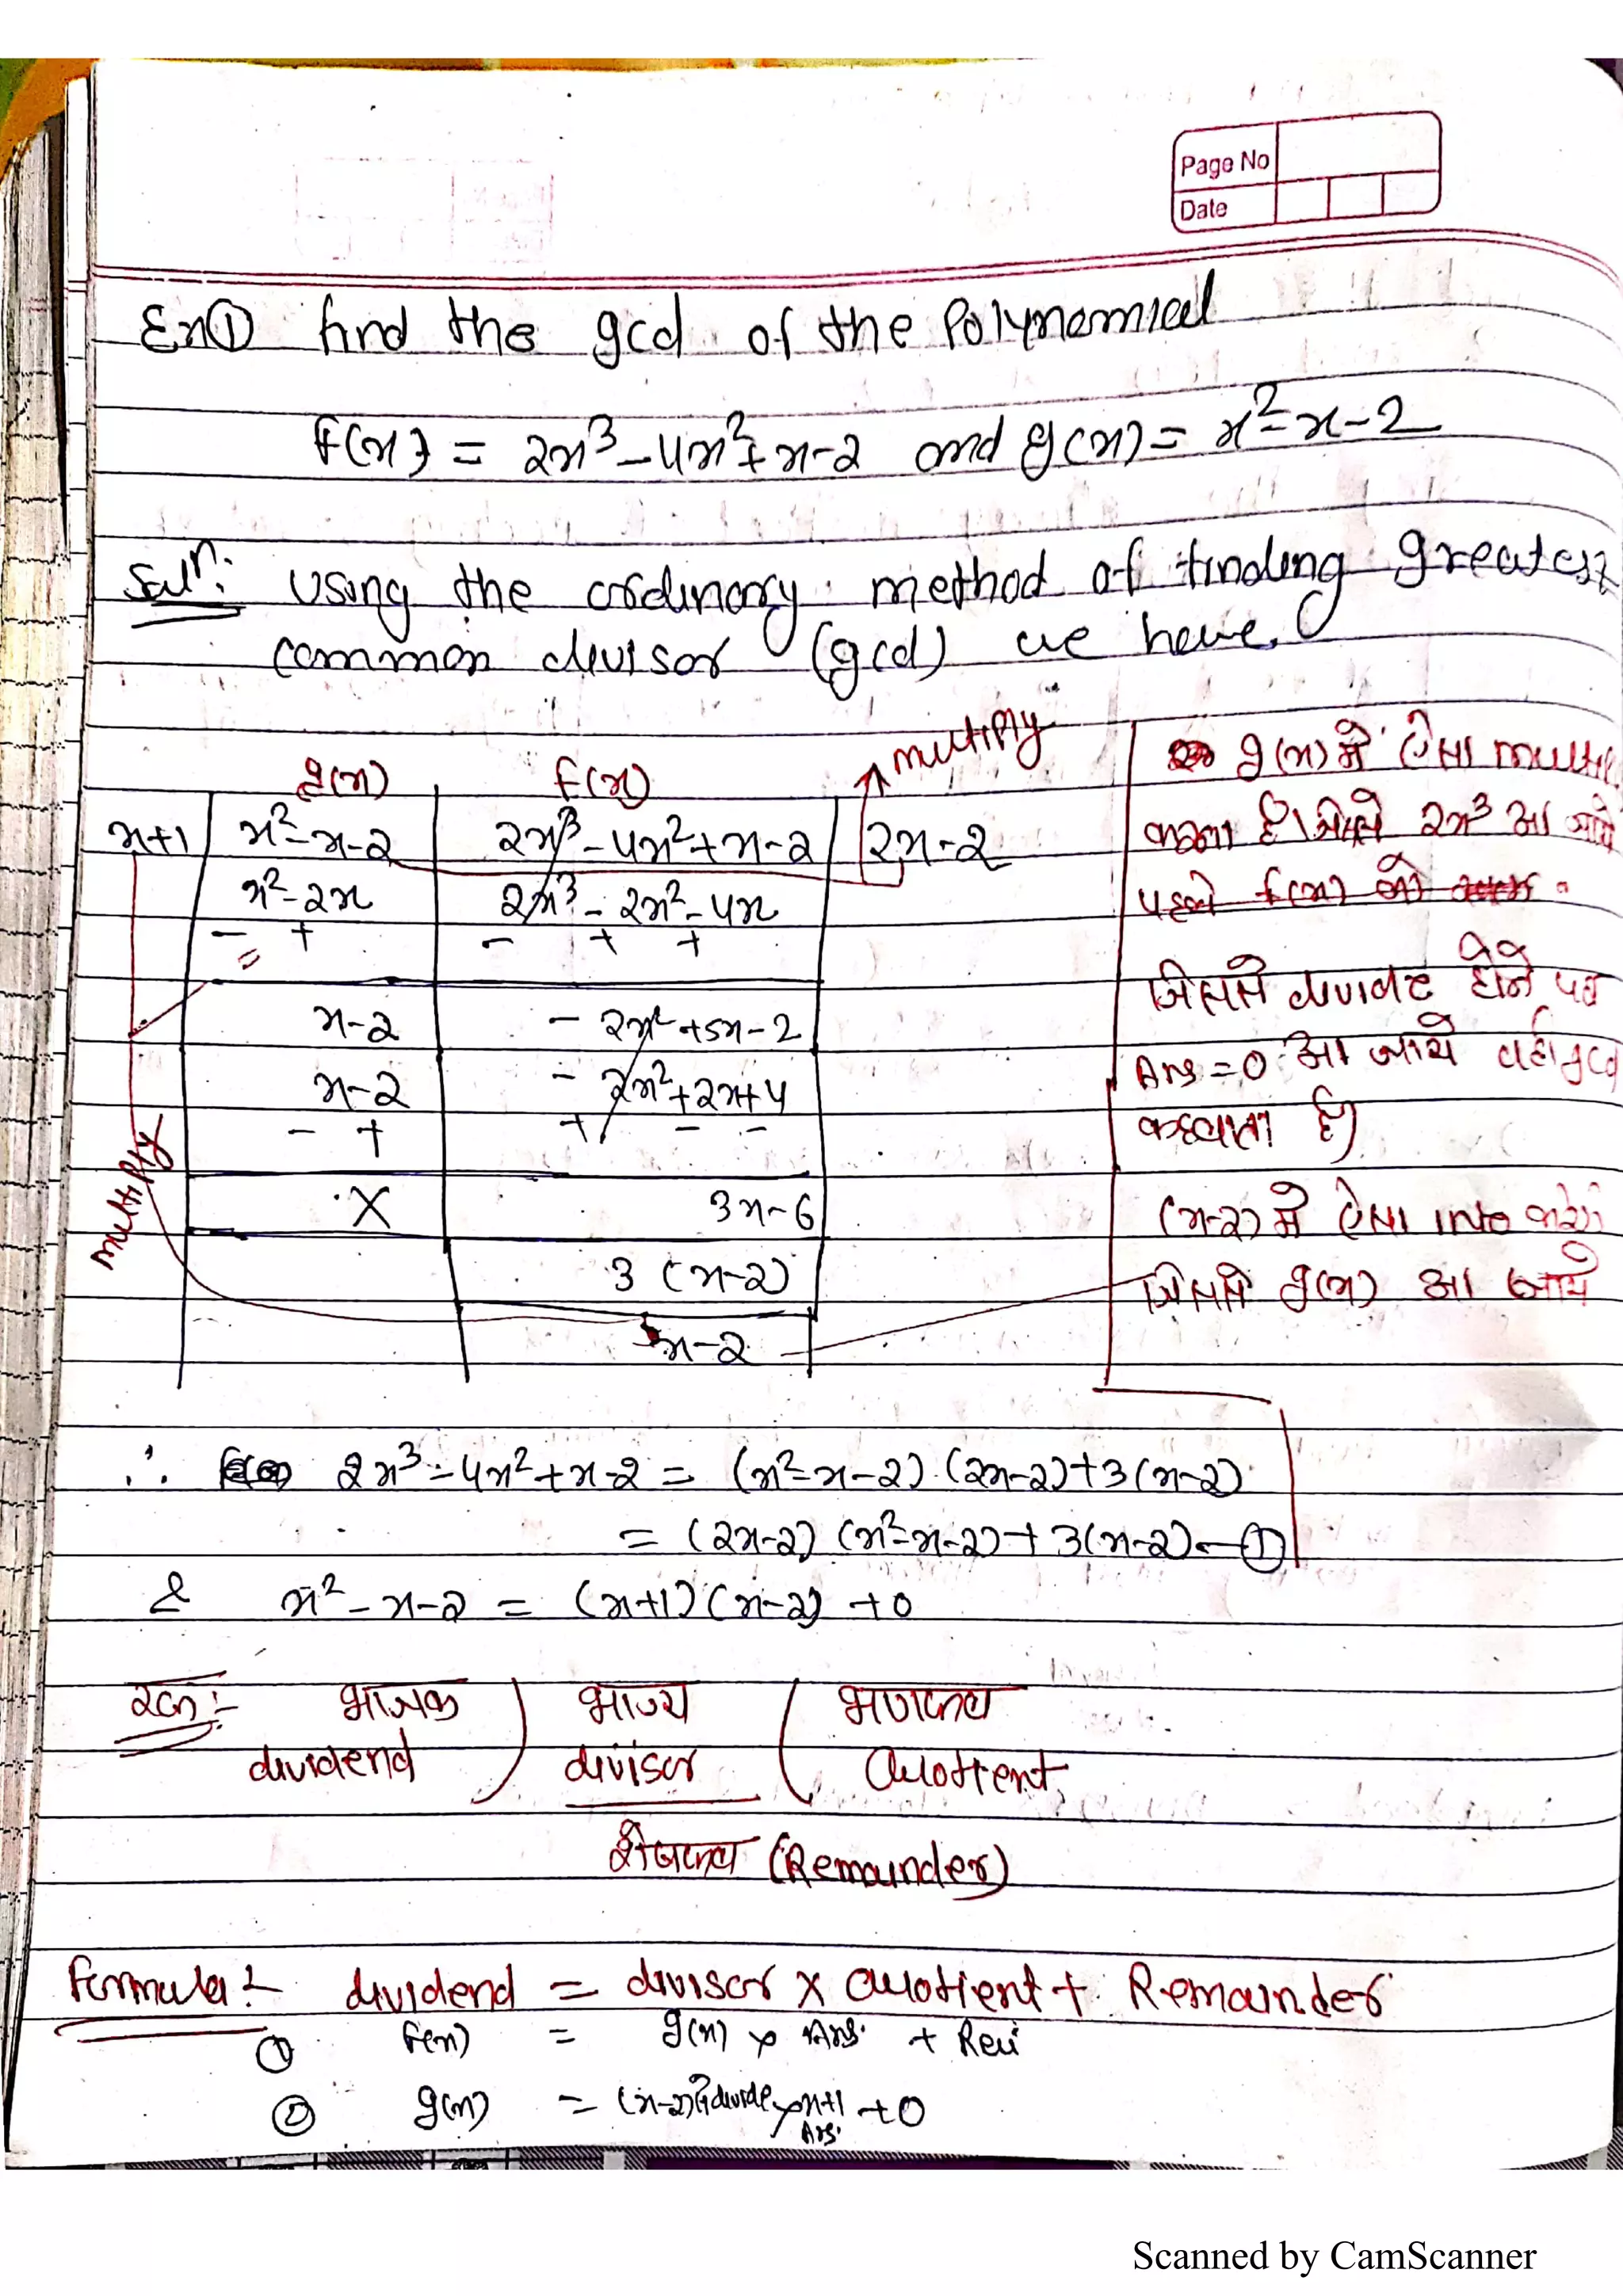 Page No
Date
Ex① find the gcd of the Polynomical
f(x) = 2x³-4x²+x-2 and g(x) = x²-x-2
Solⁿ: Using the ordinary method of finding greatest
common divisor (gcd) we have,
multiply
g(x) f(x)
x+1 x²-x-2 2x³-4x²+x-2 2x-2
x²-2x 2x³-2x²-4x
- + - + +
x-2 -2x²+5x-2
x-2 -2x²+2x+4
- + + - -
X 3x-6
3(x-2)
x-2
multiply
g(x) में ऐसा
करना है। जिससे 2x³ आ जाये
पहले f(x) को
जिससे divide होने पर
Ans = 0 आ जाये वही gcd
कहलाता है।
(x-2) में ऐसा into करेंगे
जिससे g(x) आ जाये
∴ 2x³-4x²+x-2 = (x²-x-2).(2x-2)+3(x-2)
= (2x-2)(x²-x-2)+3(x-2) - ①
& x²-x-2 = (x+1)(x-2)+0
भाजक ) भाज्य ( भागफल
dividend divisor Quotient
शेषफल (Remainder)
Formula:- dividend = divisor x Quotient + Remainder
① f(x) = g(x) x Ans. +
② g(x) = (x-2) divide x x+1 +0
Ans.
Scanned by CamScanner